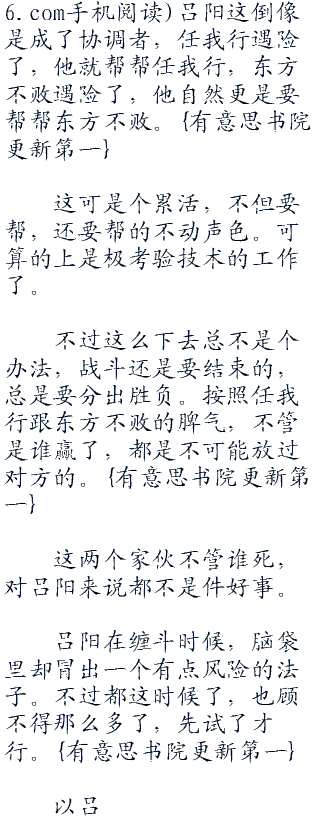 6.com手机阅读)吕阳这倒像
是成了协调者，任我行遇险
了，他就帮帮任我行，东方
不败遇险了，他自然更是要
帮帮东方不败。{有意思书院
更新第一}
这可是个累活，不但要
帮，还要帮的不动声色。可
算的上是极考验技术的工作
了。
不过这么下去总不是个
办法，战斗还是要结束的，
总是要分出胜负。按照任我
行跟东方不败的脾气，不管
是谁赢了，都是不可能放过
对方的。{有意思书院更新第
一}
这两个家伙不管谁死，
对吕阳来说都不是件好事。
吕阳在缠斗时候，脑袋
里却冒出一个有点风险的法
子。不过都这时候了，也顾
不得那么多了，先试了才
行。{有意思书院更新第一}
以吕